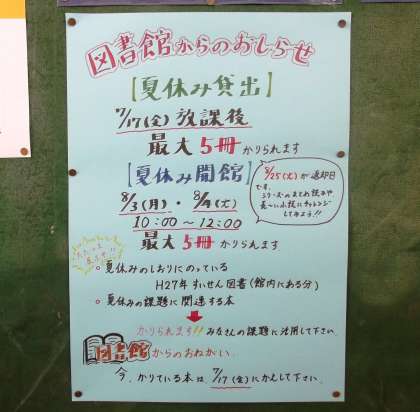 図書館からのおしらせ
【夏休み貸出】
7/17(金)放課後
最大5冊かりられます
【夏休み開館】
8/3(月)・8/4(火)
10:00～12:00
最大5冊かりられます
8/25(火)が返却日
です。
シリーズのまとめ読みや
長〜い小説にチャレンジ
してみよう!!
○夏休みのしおりにのっている
H27年すいせん図書(館内にある分)
○夏休みの課題に関連する本
かりられます!!みなさんの課題に活用して下さい。
図書館からのおねがい
今、かりている本は、7/17(金)にかえして下さい。